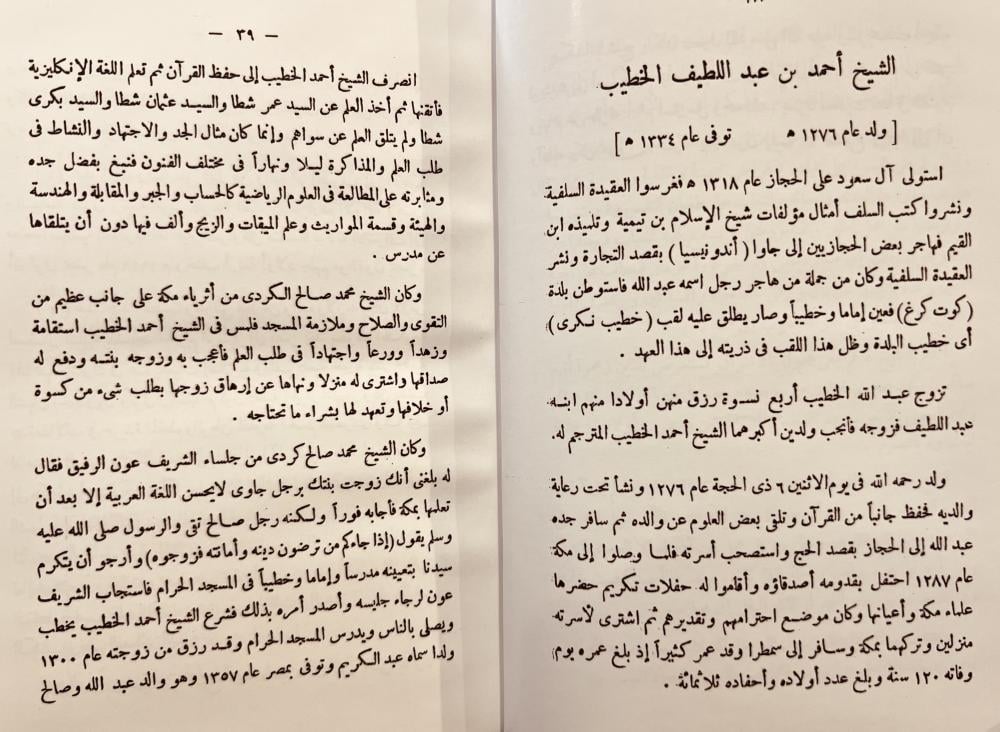 الشيخ أحمد بن عبد اللطيف الخطيب
[ ولد عام ١٢٧٦ ه توفى عام ١٣٣٤ ه ]
استولى آل سعود على الحجاز عام ١٣١٨ ه فغرسوا العقيدة السلفية
ونشروا كتب السلف أمثال مؤلفات شيخ الإسلام بن تيمية وتلميذه ابن
القيم فهاجر بعض الحجازيين إلى جاوا ( أندونيسيا ) بقصد التجارة ونشر
العقيدة السلفية وكان من جملة من هاجر رجل اسمه عبد الله فاستوطن بلدة
( كوت كرغ ) فعين إماما وخطيباً وصار يطلق عليه لقب ( خطيب نكرى )
أى خطيب البلدة وظل هذا اللقب فى ذريته إلى هذا العهد .
تزوج عبد الله الخطيب أربع نسوة رزق منهن أولادا منهم ابنه
عبد اللطيف فزوجه فأنجب ولدين أكبرهما الشيخ أحمد الخطيب المترجم له.
ولد رحمه الله فى يوم الاثنين ٦ ذى الحجة عام ١٢٧٦ ونشأ تحت رعاية
والديه فحفظ جانباً من القرآن وتلقى بعض العلوم عن والده ثم سافر جده
عبد الله إلى الحجاز بقصد الحج واستصحب أسرته فلما وصلوا إلى مكة
عام ١٢٨٧ احتفل بقدومه أصدقاؤه وأقاموا له حفلات تكريم حضرها
علماء مكة وأعيانها وكان موضع احترامهم وتقديرهم ثم اشترى لأسرته
منزلين وتركهما بمكة وسافر إلى سمطرا وقد عمر كثيراً إذ بلغ عمره يوم
وفاته ١٢٠ سنة وبلغ عدد أولاده وأحفاده ثلاثمائة .
— ٣٩ —
انصرف الشيخ أحمد الخطيب إلى حفظ القرآن ثم تعلم اللغة الإنكليزية
فأتقنها ثم أخذ العلم عن السيد عمر شطا والسيد عثمان شطا والسيد بكرى
شطا ولم يتلق العلم عن سواهم وإنما كان مثال الجد والاجتهاد والنشاط فى
طلب العلم والمذاكرة ليلا ونهاراً فى مختلف الفنون فنبغ بفضل جده
ومثابرته على المطالعة فى العلوم الرياضية كالحساب والجبر والمقابلة والهندسة
والهيئة وقسمة المواريث وعلم الميقات والزيج وألف فيها دون أن يتلقاها
عن مدرس .
وكان الشيخ محمد صالح الكردى من أثرياء مكة على جانب عظيم من
التقوى والصلاح وملازمة المسجد فلمس فى الشيخ أحمد الخطيب استقامة
وزهداً وورعاً واجتهاداً فى طلب العلم فأعجب به وزوجه بنته ودفع له
صداقها واشترى له منزلا ونهاها عن إرهاق زوجها بطلب شىء من كسوة
أو خلافها وتعهد لها بشراء ما تحتاجه .
وكان الشيخ محمد صالح كردى من جلساء الشريف عون الرفيق فقال
له بلغنى أنك زوجت بنتك برجل جاوى لايحسن اللغة العربية إلا بعد أن
تعلمها بمكة فأجابه فوراً ولكنه رجل صالح تقى والرسول صلى الله عليه
وسلم يقول (إذا جاءكم من ترضون دينه وأمانته فزوجوه) وأرجو أن يتكرم
سيدنا بتعيينه مدرساً وإماما وخطيباً فى المسجد الحرام فاستجاب الشريف
عون لرجاء جليسه وأصدر أمره بذلك فشرع الشيخ أحمد الخطيب يخطب
ويصلى بالناس ويدرس المسجد الحرام وقد رزق من زوجته عام ١٣٠٠
ولدا سماه عبد الكريم وتوفى بمصر عام ١٣٥٧ وهو والد عبد الله وصالح